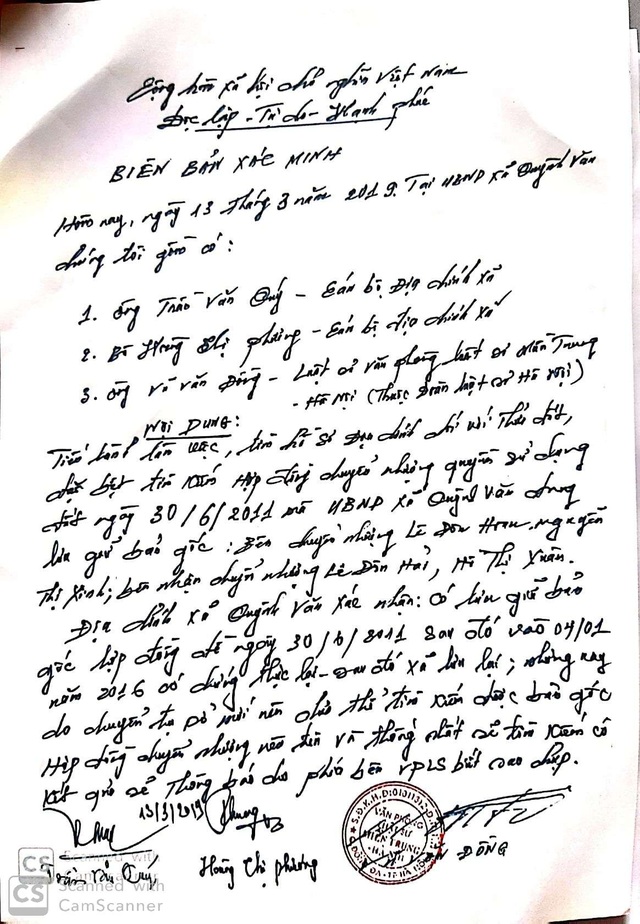 Cộng hòa xã hội chủ nghĩa Việt Nam
Độc lập - Tự do - Hạnh phúc
BIÊN BẢN XÁC MINH
Hôm nay, ngày 13 tháng 3 năm 2019. Tại UBND xã Quỳnh Văn
chúng tôi gồm có:
1. Ông Trần Văn Quý - Cán bộ Địa chính xã
2. Bà Hoàng Thị Phương - Cán bộ địa chính xã
3. Ông Vũ Văn Đồng - Luật sư văn phòng luật sư Miền Trung
- Hà Nội (Thuộc Đoàn luật sư Hà Nội)
NỘI DUNG:
Tiến hành làm việc, tìm hồ sơ địa chính đối với Thửa đất,
đặc biệt tìm kiếm Hợp đồng chuyển nhượng quyền sử dụng
đất ngày 30/6/2011 mà UBND xã Quỳnh Văn đang
lưu giữ bản gốc: Bên chuyển nhượng Lê Đôn Hoan, Nguyễn
Thị Xinh; bên nhận chuyển nhượng Lê Đôn Hải, Hồ Thị Xuân.
Địa chính xã Quỳnh Văn xác nhận: Có lưu giữ bản
gốc hợp đồng đề ngày 30/6/2011 sau đó vào 04/01
năm 2016 có chứng thực lại - sau đó xã lưu lại; nhưng nay
do chuyển trụ sở mới nên chưa thể tìm kiếm được bản gốc
Hợp đồng chuyển nhượng nêu trên và thống nhất sẽ tìm kiếm có
kết quả sẽ Thông báo cho phía bên VPLS biết sao chụp.
13/3/2019
Trần Văn Quý
Hoàng Thị Phương
S.Đ.K.H.Đ: 01011312
VĂN PHÒNG
LUẬT SƯ
MIỀN TRUNG
- HÀ NỘI
ĐỒNG
CS Scanned with
CS Scanned with
CamScanner